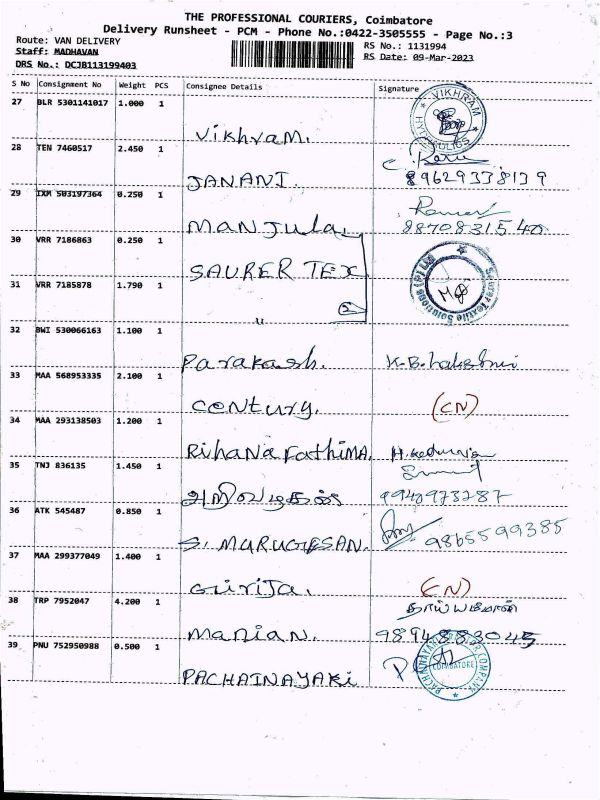 THE PROFESSIONAL COURIERS, Coimbatore
Delivery Runsheet - PCM - Phone No.:0422-3505555 - Page No.:3
Route: VAN DELIVERY
RS No.: 1131994
Staff: MADHAVAN
RS Date: 09-Mar-2023
DRS No.: DCJB113199403
S No Consignment No Weight PCS Consignee Details Signature
27 BLR 5301141017 1.000 1
VIKHRAM HYDRAULICS
Vikhram.
28 TEN 7460517 2.450 1
JANANI. 89629338139
29 IXM 503197364 0.250 1
Manjula. 8870831540
30 VRR 7186863 0.250 1
SAURER TEX
Saurer Textile Solutions (P) Ltd
31 VRR 7185878 1.790 1
" 2
32 BWI 530066163 1.100 1
Parakash. K.B.
33 MAA 568953335 2.100 1
Century. (CN)
34 MAA 293138503 1.200 1
Rihana Fathima.
35 TNJ 836135 1.450 1
9940973287
36 ATK 545487 0.850 1
S. MURUGESAN. 9865599385
37 MAA 299377049 1.400 1
Girija. (CN)
38 TRP 7952047 4.200 1
Manian. 9894883045
39 PNU 752950988 0.500 1
COIMBATORE
PACHAINAYAKI